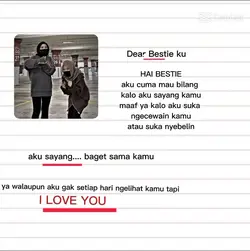 Dear Bestie ku
HAI BESTIE
aku cuma mau bilang
kalo aku sayang kamu
maaf ya kalo aku suka
ngecewain kamu
atau suka nyebelin
aku sayang.... baget sama kamu
ya walaupun aku gak setiap hari ngelihat kamu tapi
I LOVE YOU